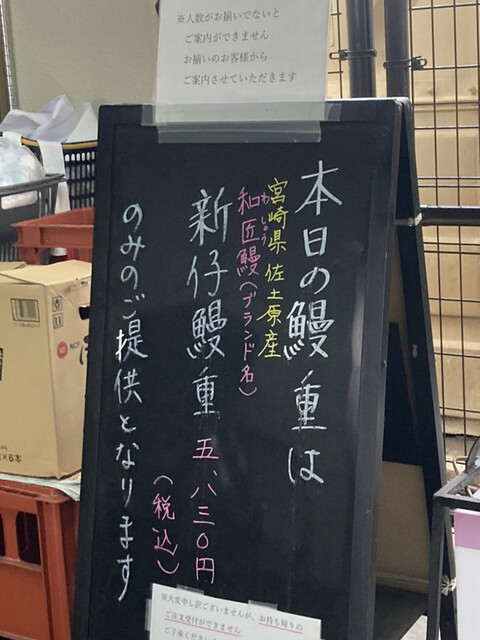 ※人数がお揃いでないと
ご案内ができません
お揃いのお客様から
ご案内させていただきます
本日の鰻重は
宮崎県佐土原産
わしょう
和匠鰻(ブランド名)
新仔鰻重 五、八三〇円
(税込)
のみのご提供となります
※大変申し訳ございませんが、お持ち帰りの
ご注文受付ができません
×6本